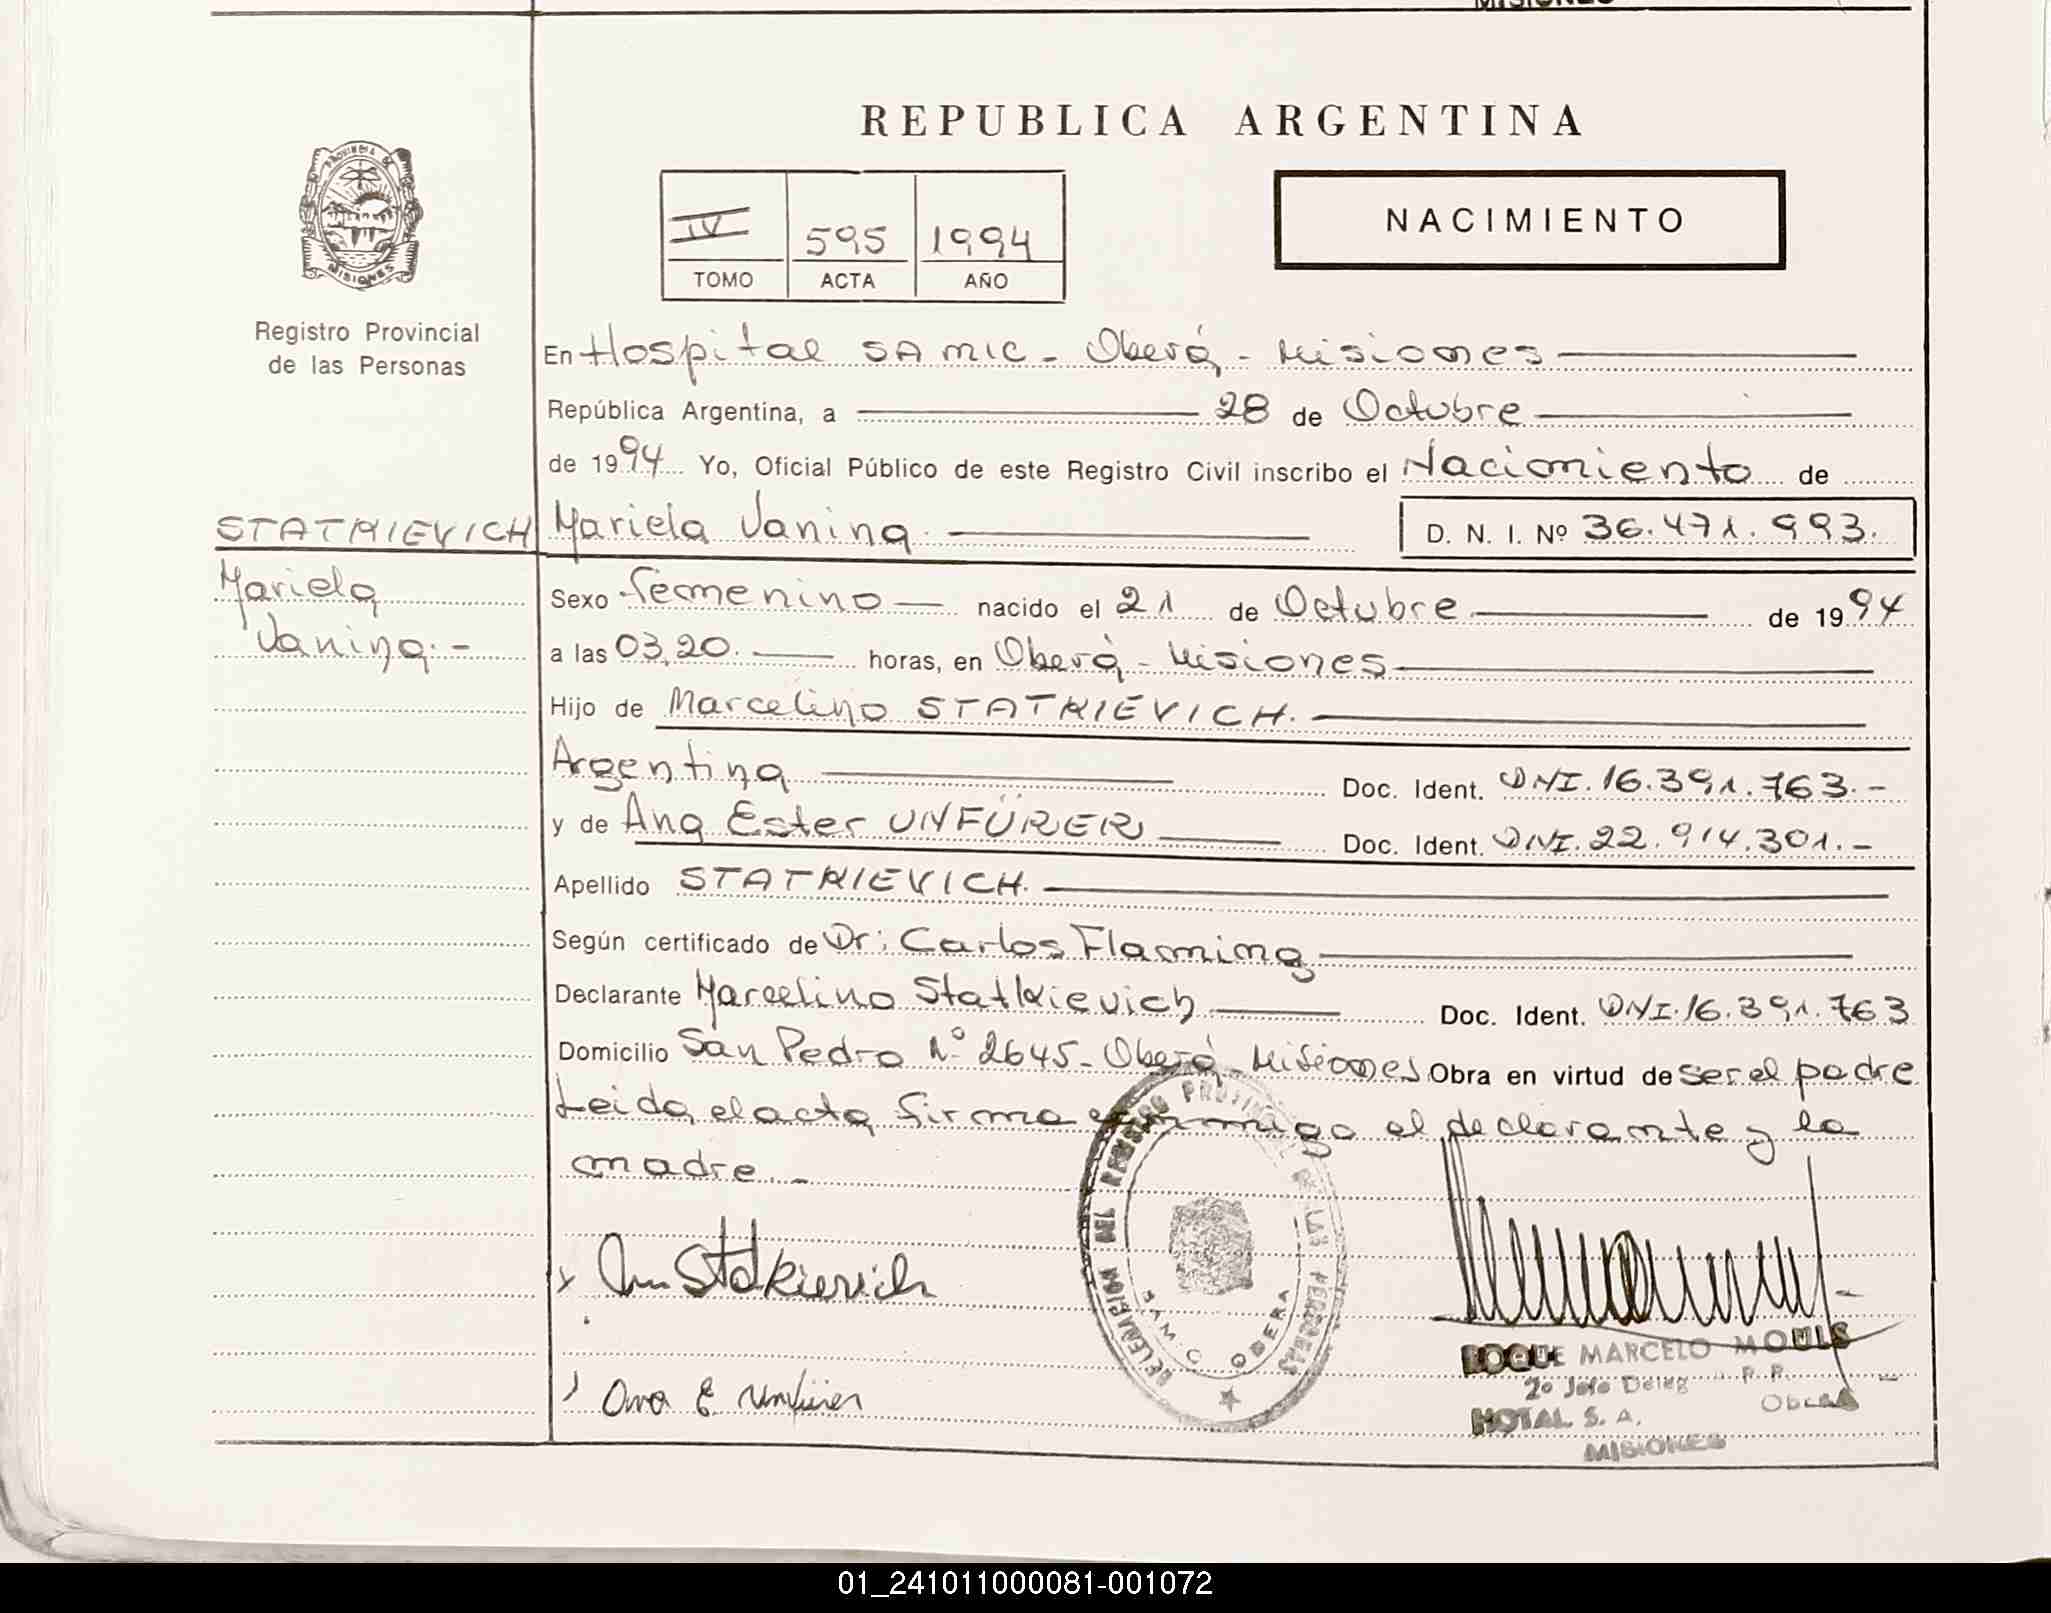 MISIONES
REPUBLICA ARGENTINA
PROVINCIA DE
MISIONES
Registro Provincial
de las Personas
IV 595 1994
TOMO ACTA AÑO
NACIMIENTO
En Hospital SAMIC - Oberá - Misiones
República Argentina, a 28 de Octubre
de 1994 Yo, Oficial Público de este Registro Civil inscribo el Nacimiento de
STATKIEVICH Mariela Vanina. D. N. I. Nº 36.471.993.
Mariela
Vanina.-
Sexo Femenino nacido el 21 de Octubre de 1994
a las 03,20. horas, en Oberá - Misiones
Hijo de Marcelino STATKIEVICH.
Argentina Doc. Ident. DNI. 16.391.763.-
y de Ana Ester UNFÜRER Doc. Ident. DNI. 22.914.301.-
Apellido STATKIEVICH.
Según certificado de Dr: Carlos Flaming
Declarante Marcelino Statkievich Doc. Ident. DNI. 16.391.763
Domicilio San Pedro Nº 2645 - Oberá - Misiones Obra en virtud de ser el padre
Leida el acta firma conmigo el declarante y la
madre.-
Statkievich
Ana E. Unfürer
DELEGACION DEL REGISTRO PROVINCIAL DE LAS PERSONAS
SAMIC OBERA
ROQUE MARCELO MOULS
2º Jefe Deleg R. P.
Obera
MISIONES
01_241011000081-001072